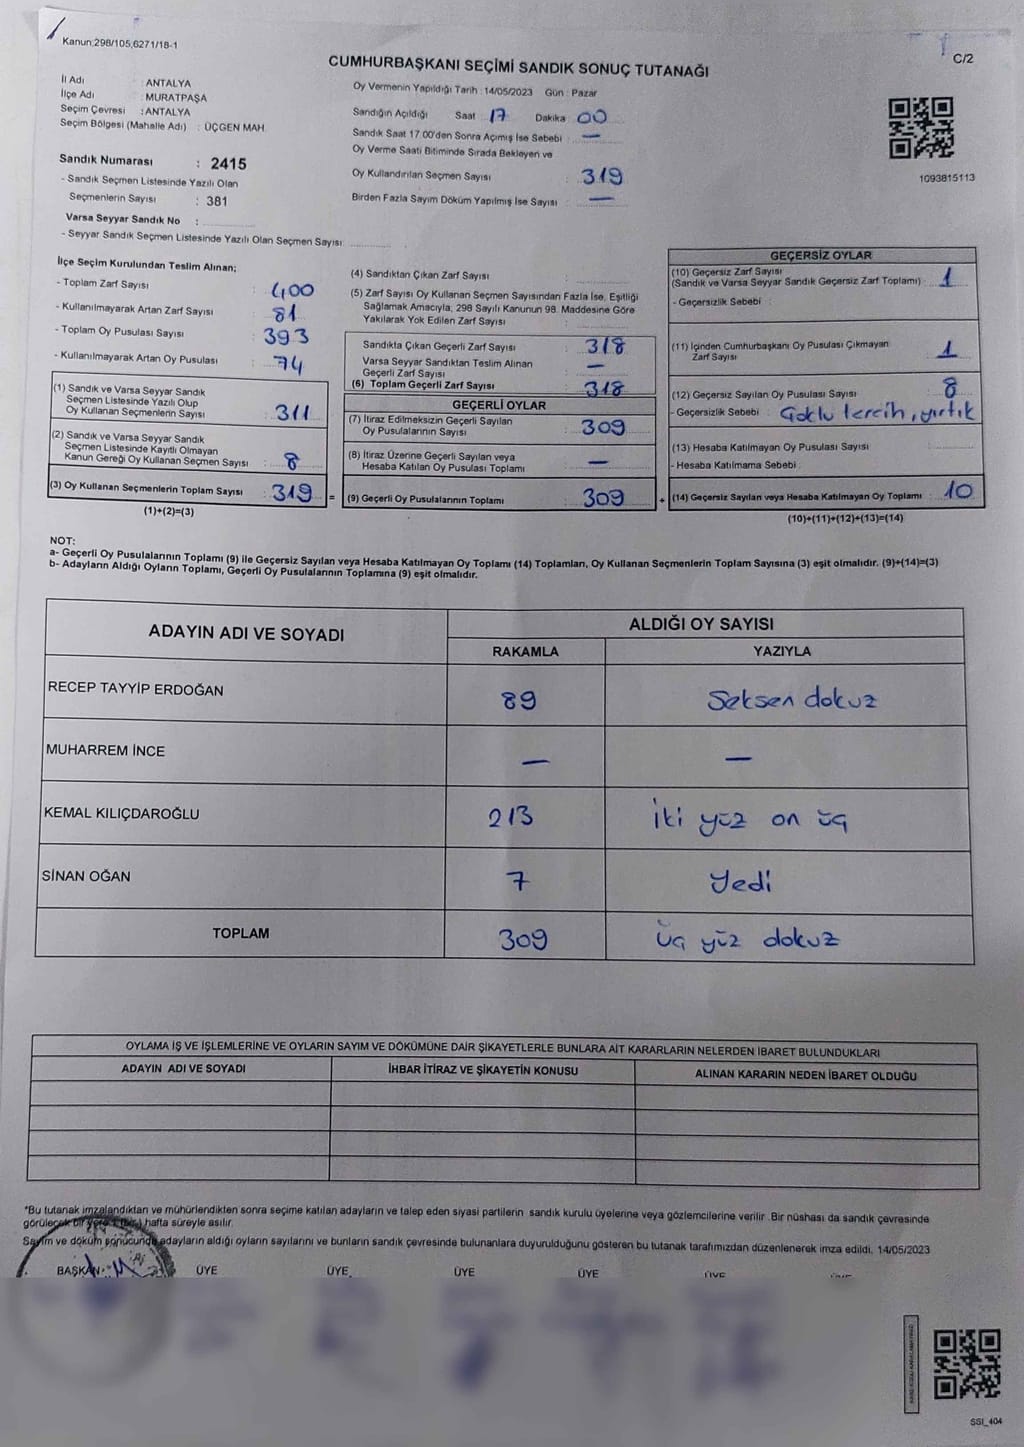 Kanun;298/105,6271/18-1
C/2
CUMHURBAŞKANI SEÇİMİ SANDIK SONUÇ TUTANAĞI
İl Adı : ANTALYA
İlçe Adı : MURATPAŞA
Seçim Çevresi : ANTALYA
Seçim Bölgesi (Mahalle Adı) : ÜÇGEN MAH.
Sandık Numarası : 2415
- Sandık Seçmen Listesinde Yazılı Olan
Seçmenlerin Sayısı : 381
Varsa Seyyar Sandık No :
- Seyyar Sandık Seçmen Listesinde Yazılı Olan Seçmen Sayısı:
Oy Vermenin Yapıldığı Tarih : 14/05/2023 Gün : Pazar
Sandığın Açıldığı Saat 17 Dakika 00
Sandık Saat 17.00'den Sonra Açımış İse Sebebi : —
Oy Verme Saati Bitiminde Sırada Bekleyen ve
Oy Kullandırılan Seçmen Sayısı : 319
Birden Fazla Sayım Döküm Yapılmış İse Sayısı : —
1093815113
İlçe Seçim Kurulundan Teslim Alınan;
- Toplam Zarf Sayısı : 400
- Kullanılmayarak Artan Zarf Sayısı : 81
- Toplam Oy Pusulası Sayısı : 393
- Kullanılmayarak Artan Oy Pusulası : 74
(1) Sandık ve Varsa Seyyar Sandık
Seçmen Listesinde Yazılı Olup
Oy Kullanan Seçmenlerin Sayısı : 311
(2) Sandık ve Varsa Seyyar Sandık
Seçmen Listesinde Kayıtlı Olmayan
Kanun Gereği Oy Kullanan Seçmen Sayısı : 8
(3) Oy Kullanan Seçmenlerin Toplam Sayısı : 319 =
(1)+(2)=(3)
(4) Sandıktan Çıkan Zarf Sayısı :
(5) Zarf Sayısı Oy Kullanan Seçmen Sayısından Fazla İse, Eşitliği
Sağlamak Amacıyla, 298 Sayılı Kanunun 98. Maddesine Göre
Yakılarak Yok Edilen Zarf Sayısı :
Sandıkta Çıkan Geçerli Zarf Sayısı : 318
Varsa Seyyar Sandıktan Teslim Alınan
Geçerli Zarf Sayısı : —
(6) Toplam Geçerli Zarf Sayısı : 318
GEÇERLİ OYLAR
(7) İtiraz Edilmeksizin Geçerli Sayılan
Oy Pusulalarının Sayısı : 309
(8) İtiraz Üzerine Geçerli Sayılan veya
Hesaba Katılan Oy Pusulası Toplamı : —
(9) Geçerli Oy Pusulalarının Toplamı : 309 +
GEÇERSİZ OYLAR
(10) Geçersiz Zarf Sayısı
(Sandık ve Varsa Seyyar Sandık Geçersiz Zarf Toplamı) : 1
- Geçersizlik Sebebi :
(11) İçinden Cumhurbaşkanı Oy Pusulası Çıkmayan
Zarf Sayısı : 1
(12) Geçersiz Sayılan Oy Pusulası Sayısı : 8
- Geçersizlik Sebebi : Çoklu tercih, yırtık
(13) Hesaba Katılmayan Oy Pusulası Sayısı :
- Hesaba Katılmama Sebebi :
(14) Geçersiz Sayılan veya Hesaba Katılmayan Oy Toplamı : 10
(10)+(11)+(12)+(13)=(14)
NOT:
a- Geçerli Oy Pusulalarının Toplamı (9) ile Geçersiz Sayılan veya Hesaba Katılmayan Oy Toplamı (14) Toplamları, Oy Kullanan Seçmenlerin Toplam Sayısına (3) eşit olmalıdır. (9)+(14)=(3)
b- Adayların Aldığı Oyların Toplamı, Geçerli Oy Pusulalarının Toplamına (9) eşit olmalıdır.
ADAYIN ADI VE SOYADI ALDIĞI OY SAYISI
RAKAMLA YAZIYLA
RECEP TAYYİP ERDOĞAN 89 Seksen dokuz
MUHARREM İNCE — —
KEMAL KILIÇDAROĞLU 213 İki yüz on üç
SİNAN OĞAN 7 Yedi
TOPLAM 309 Üç yüz dokuz
OYLAMA İŞ VE İŞLEMLERİNE VE OYLARIN SAYIM VE DÖKÜMÜNE DAİR ŞİKAYETLERLE BUNLARA AİT KARARLARIN NELERDEN İBARET BULUNDUKLARI
ADAYIN ADI VE SOYADI İHBAR İTİRAZ VE ŞİKAYETİN KONUSU ALINAN KARARIN NEDEN İBARET OLDUĞU
*Bu tutanak imzalandıktan ve mühürlendikten sonra seçime katılan adayların ve talep eden siyasi partilerin sandık kurulu üyelerine veya gözlemcilerine verilir. Bir nüshası da sandık çevresinde
görülecek bir yere 1 (bir) hafta süreyle asılır.
Sayım ve döküm sonucunda adayların aldığı oyların sayılarını ve bunların sandık çevresinde bulunanlara duyurulduğunu gösteren bu tutanak tarafımızdan düzenlenerek imza edildi. 14/05/2023
BAŞKAN ÜYE ÜYE ÜYE ÜYE ÜYE
SSI_404